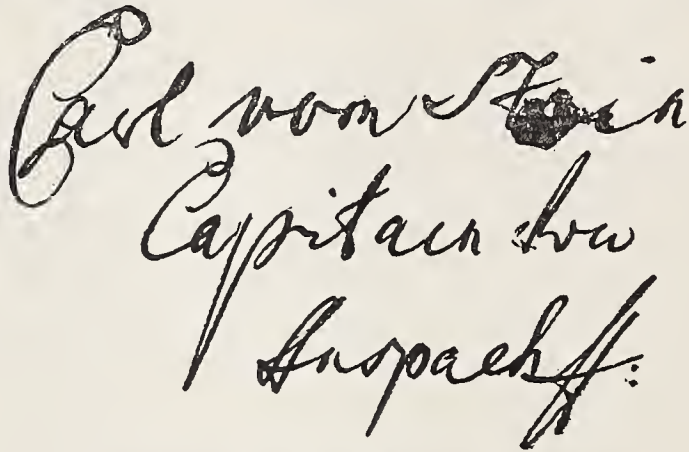 Carl vom Stein
Capitain von
Anspach ff: